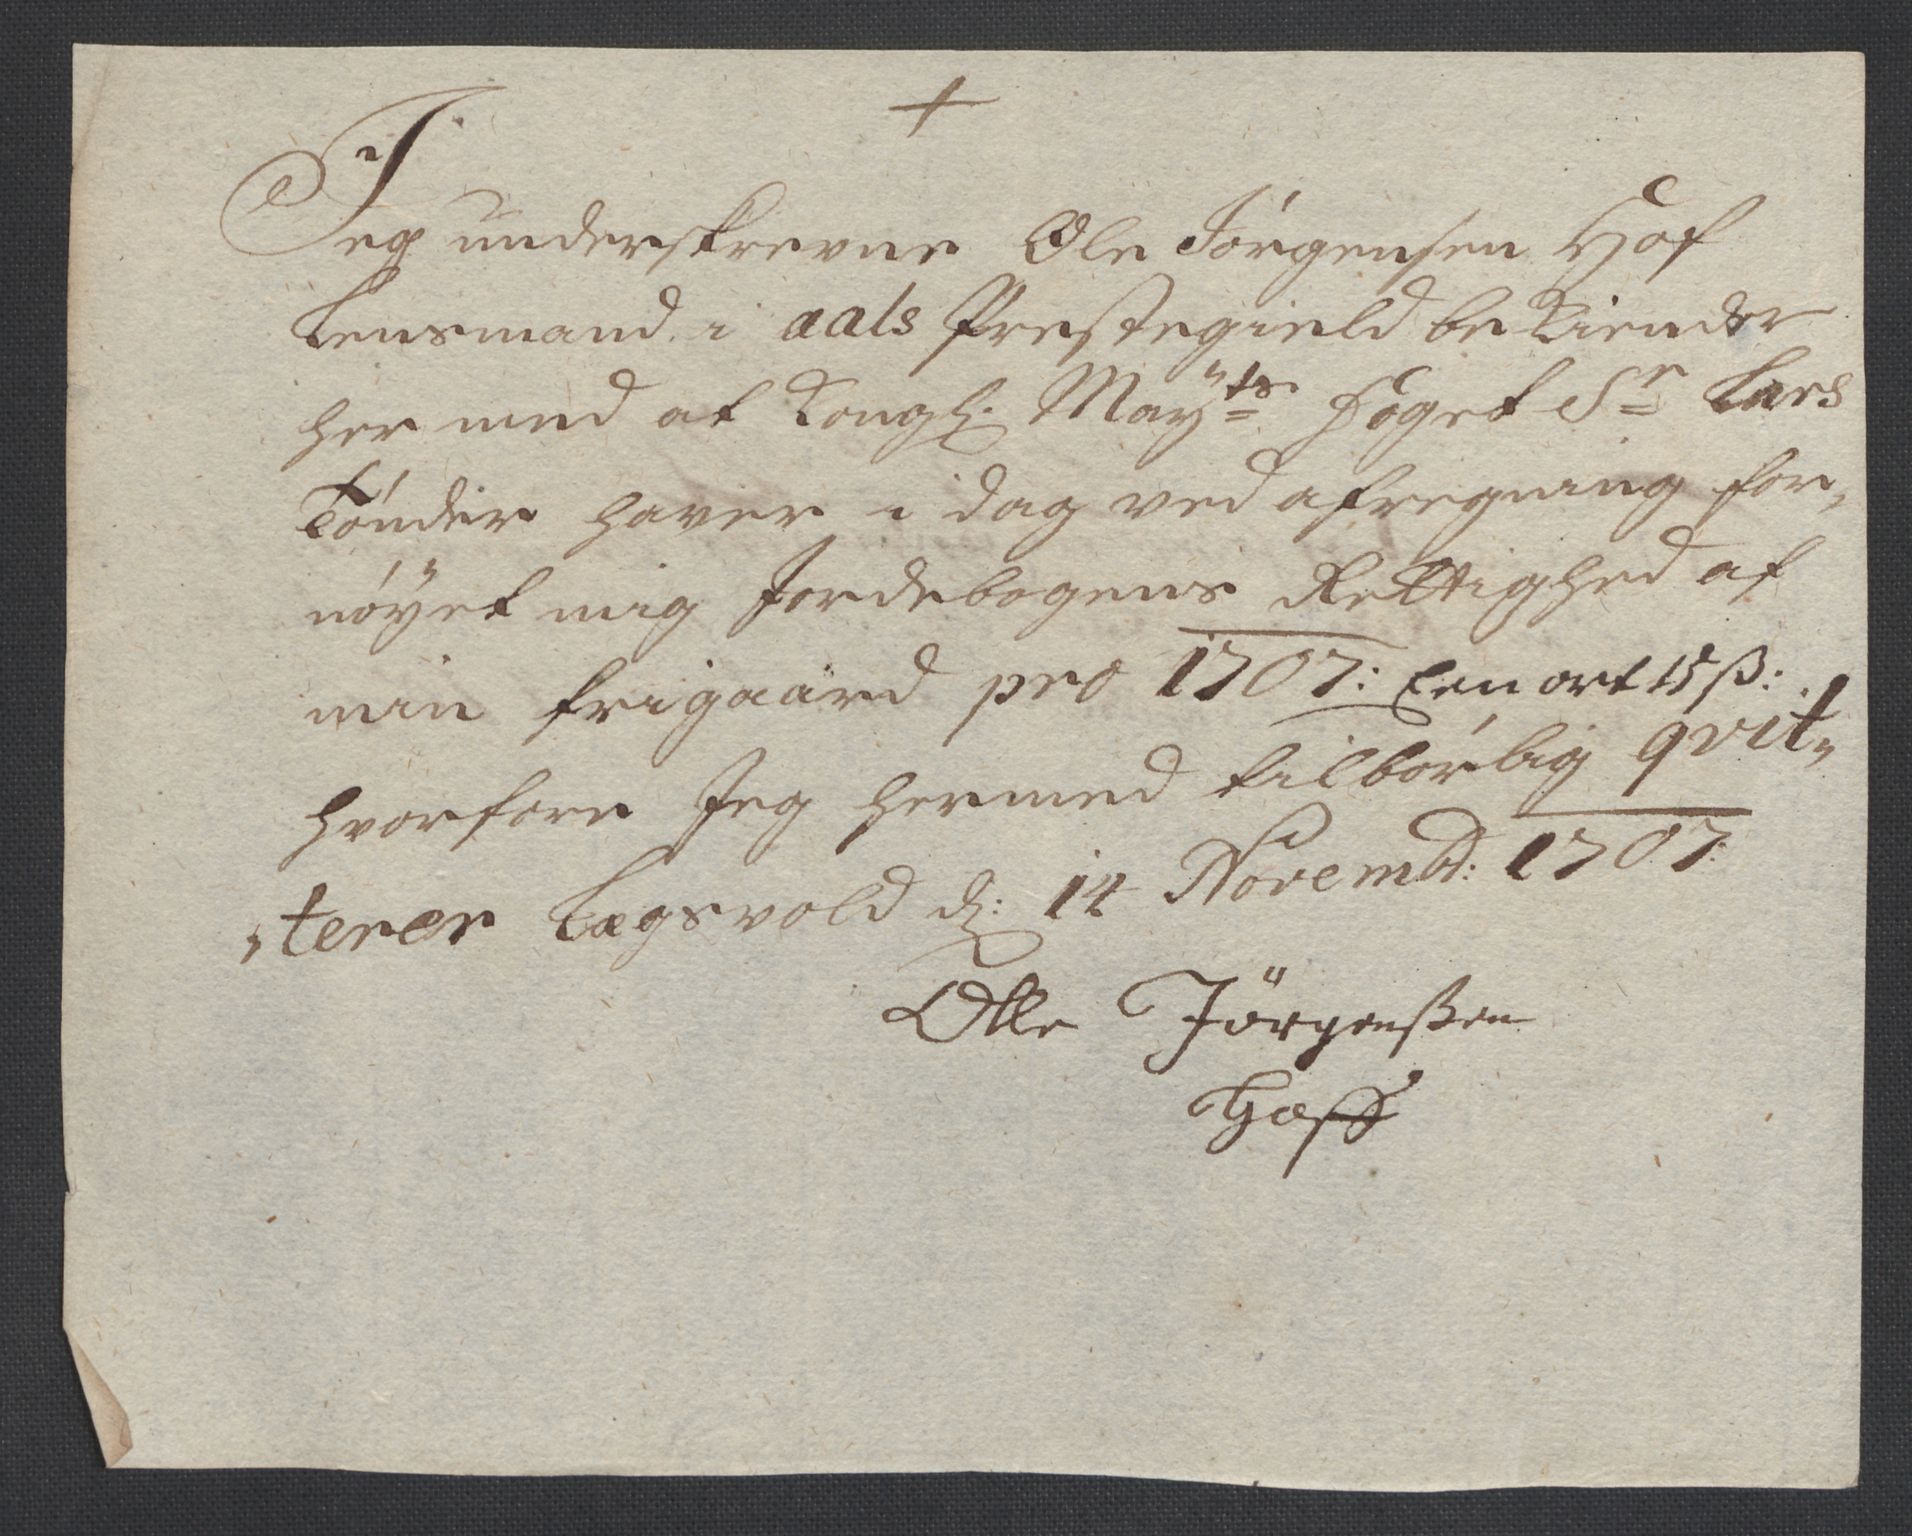 +
Jeg underskrevne Ole Jörgensen Hof
Lensmand i aals Prestegield be Kiender
her med at Kongl: Mayts foget Sr Lars
Tønder haver i dag ved afregning for„
nöyet mig Jordebogens Rettighed af
min frigaard pro 1707: Een ort 15 ß:
hvorfore Jeg hermed tilbörlig qvit„
„terer Lægsvold d: 14 Novembr: 1707:
Olle Jörgenßen
Hoff